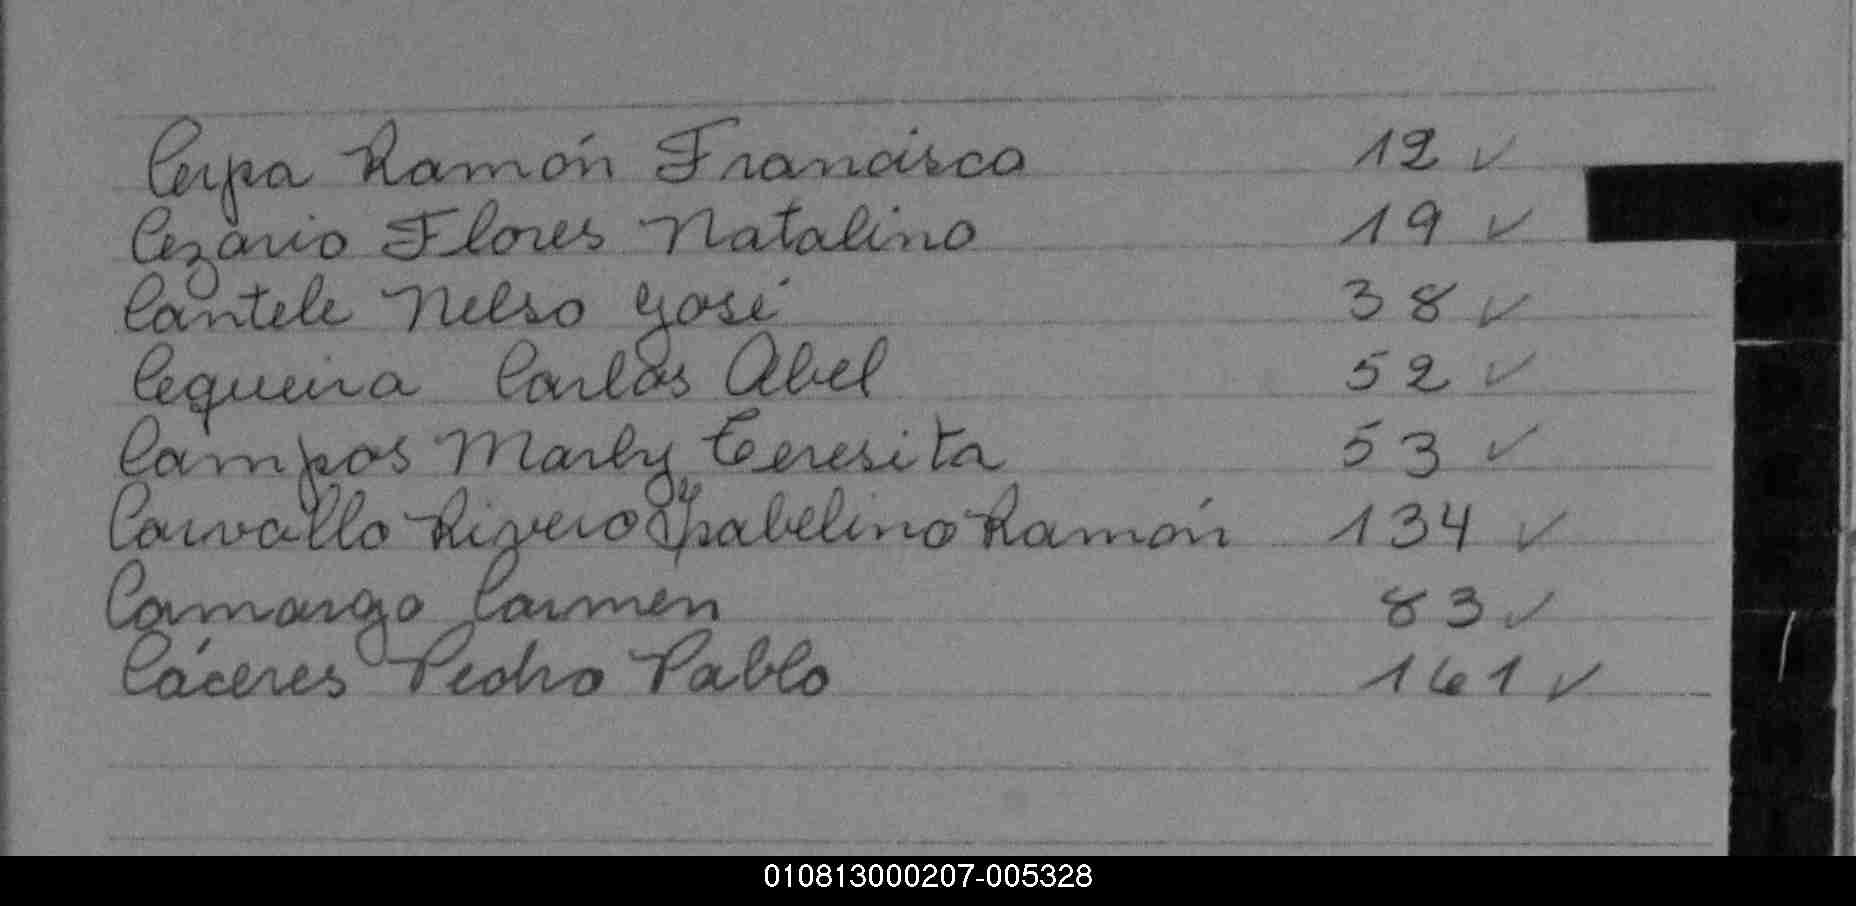 Cerpa Ramón Francisco 12 ✓
Cezario Flores Natalino 19 ✓
Cantele Nelso José 38 ✓
Cequeira Carlos Abel 52 ✓
Campos Marly Teresita 53 ✓
Carvallo Rivero Ysabelino Ramón 134 ✓
Camargo Carmen 83 ✓
Cáceres Pedro Pablo 161 ✓
010813000207-005328